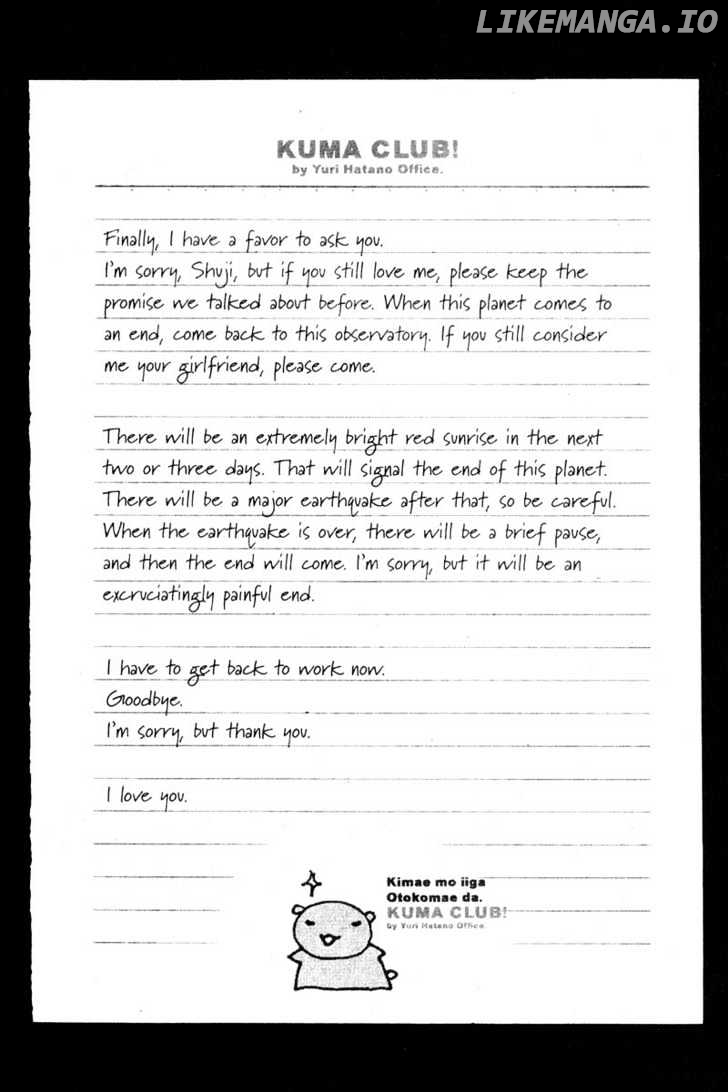 LIKEMANGA.IO
KUMA CLUB!
by Yuri Hatano Office.
Finally, I have a favor to ask you.
I'm sorry, Shuji, but if you still love me, please keep the
promise we talked about before. When this planet comes to
an end, come back to this observatory. If you still consider
me your girlfriend, please come.
There will be an extremely bright red sunrise in the next
two or three days. That will signal the end of this planet.
There will be a major earthquake after that, so be careful.
When the earthquake is over, there will be a brief pause,
and then the end will come. I'm sorry, but it will be an
excruciatingly painful end.
I have to get back to work now.
Goodbye.
I'm sorry, but thank you.
I love you.
Kimae mo iiga
Otokomae da.
KUMA CLUB!
by Yuri Hatano Office.